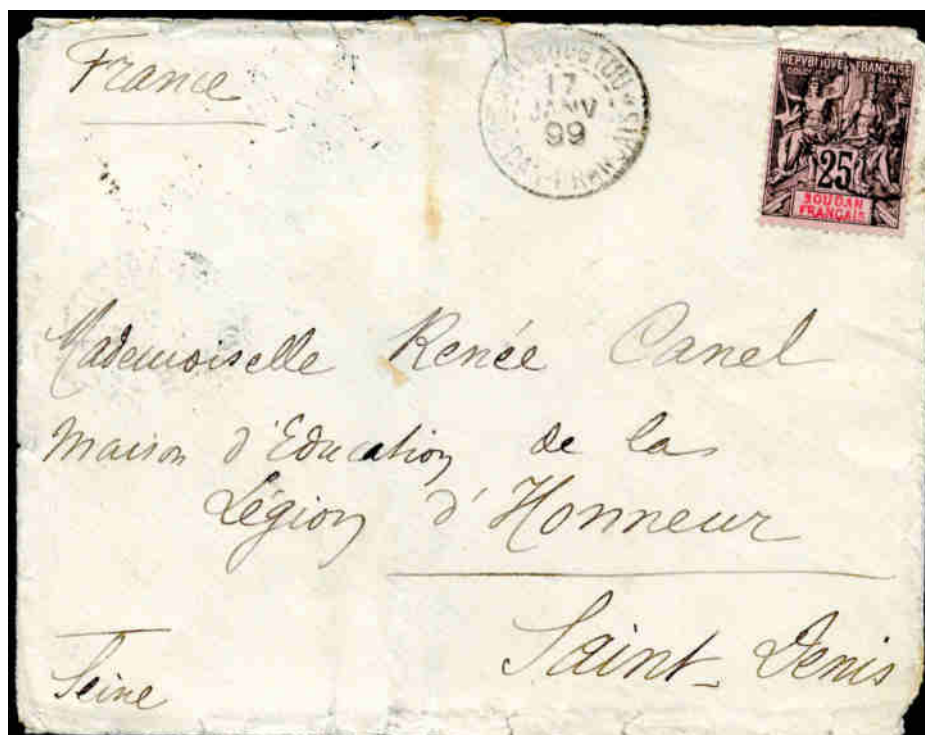 France
17
JANV
99
REPVBLIQUE FRANÇAISE
25
SOUDAN
FRANÇAIS
Mademoiselle Renée Canel
Maison d'Education de la
Légion d'Honneur
Saint-Denis
Seine